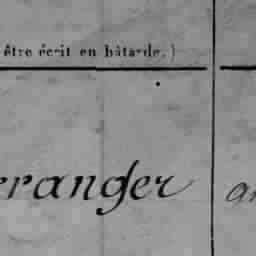 être écrit en bâtarde.)
eranger